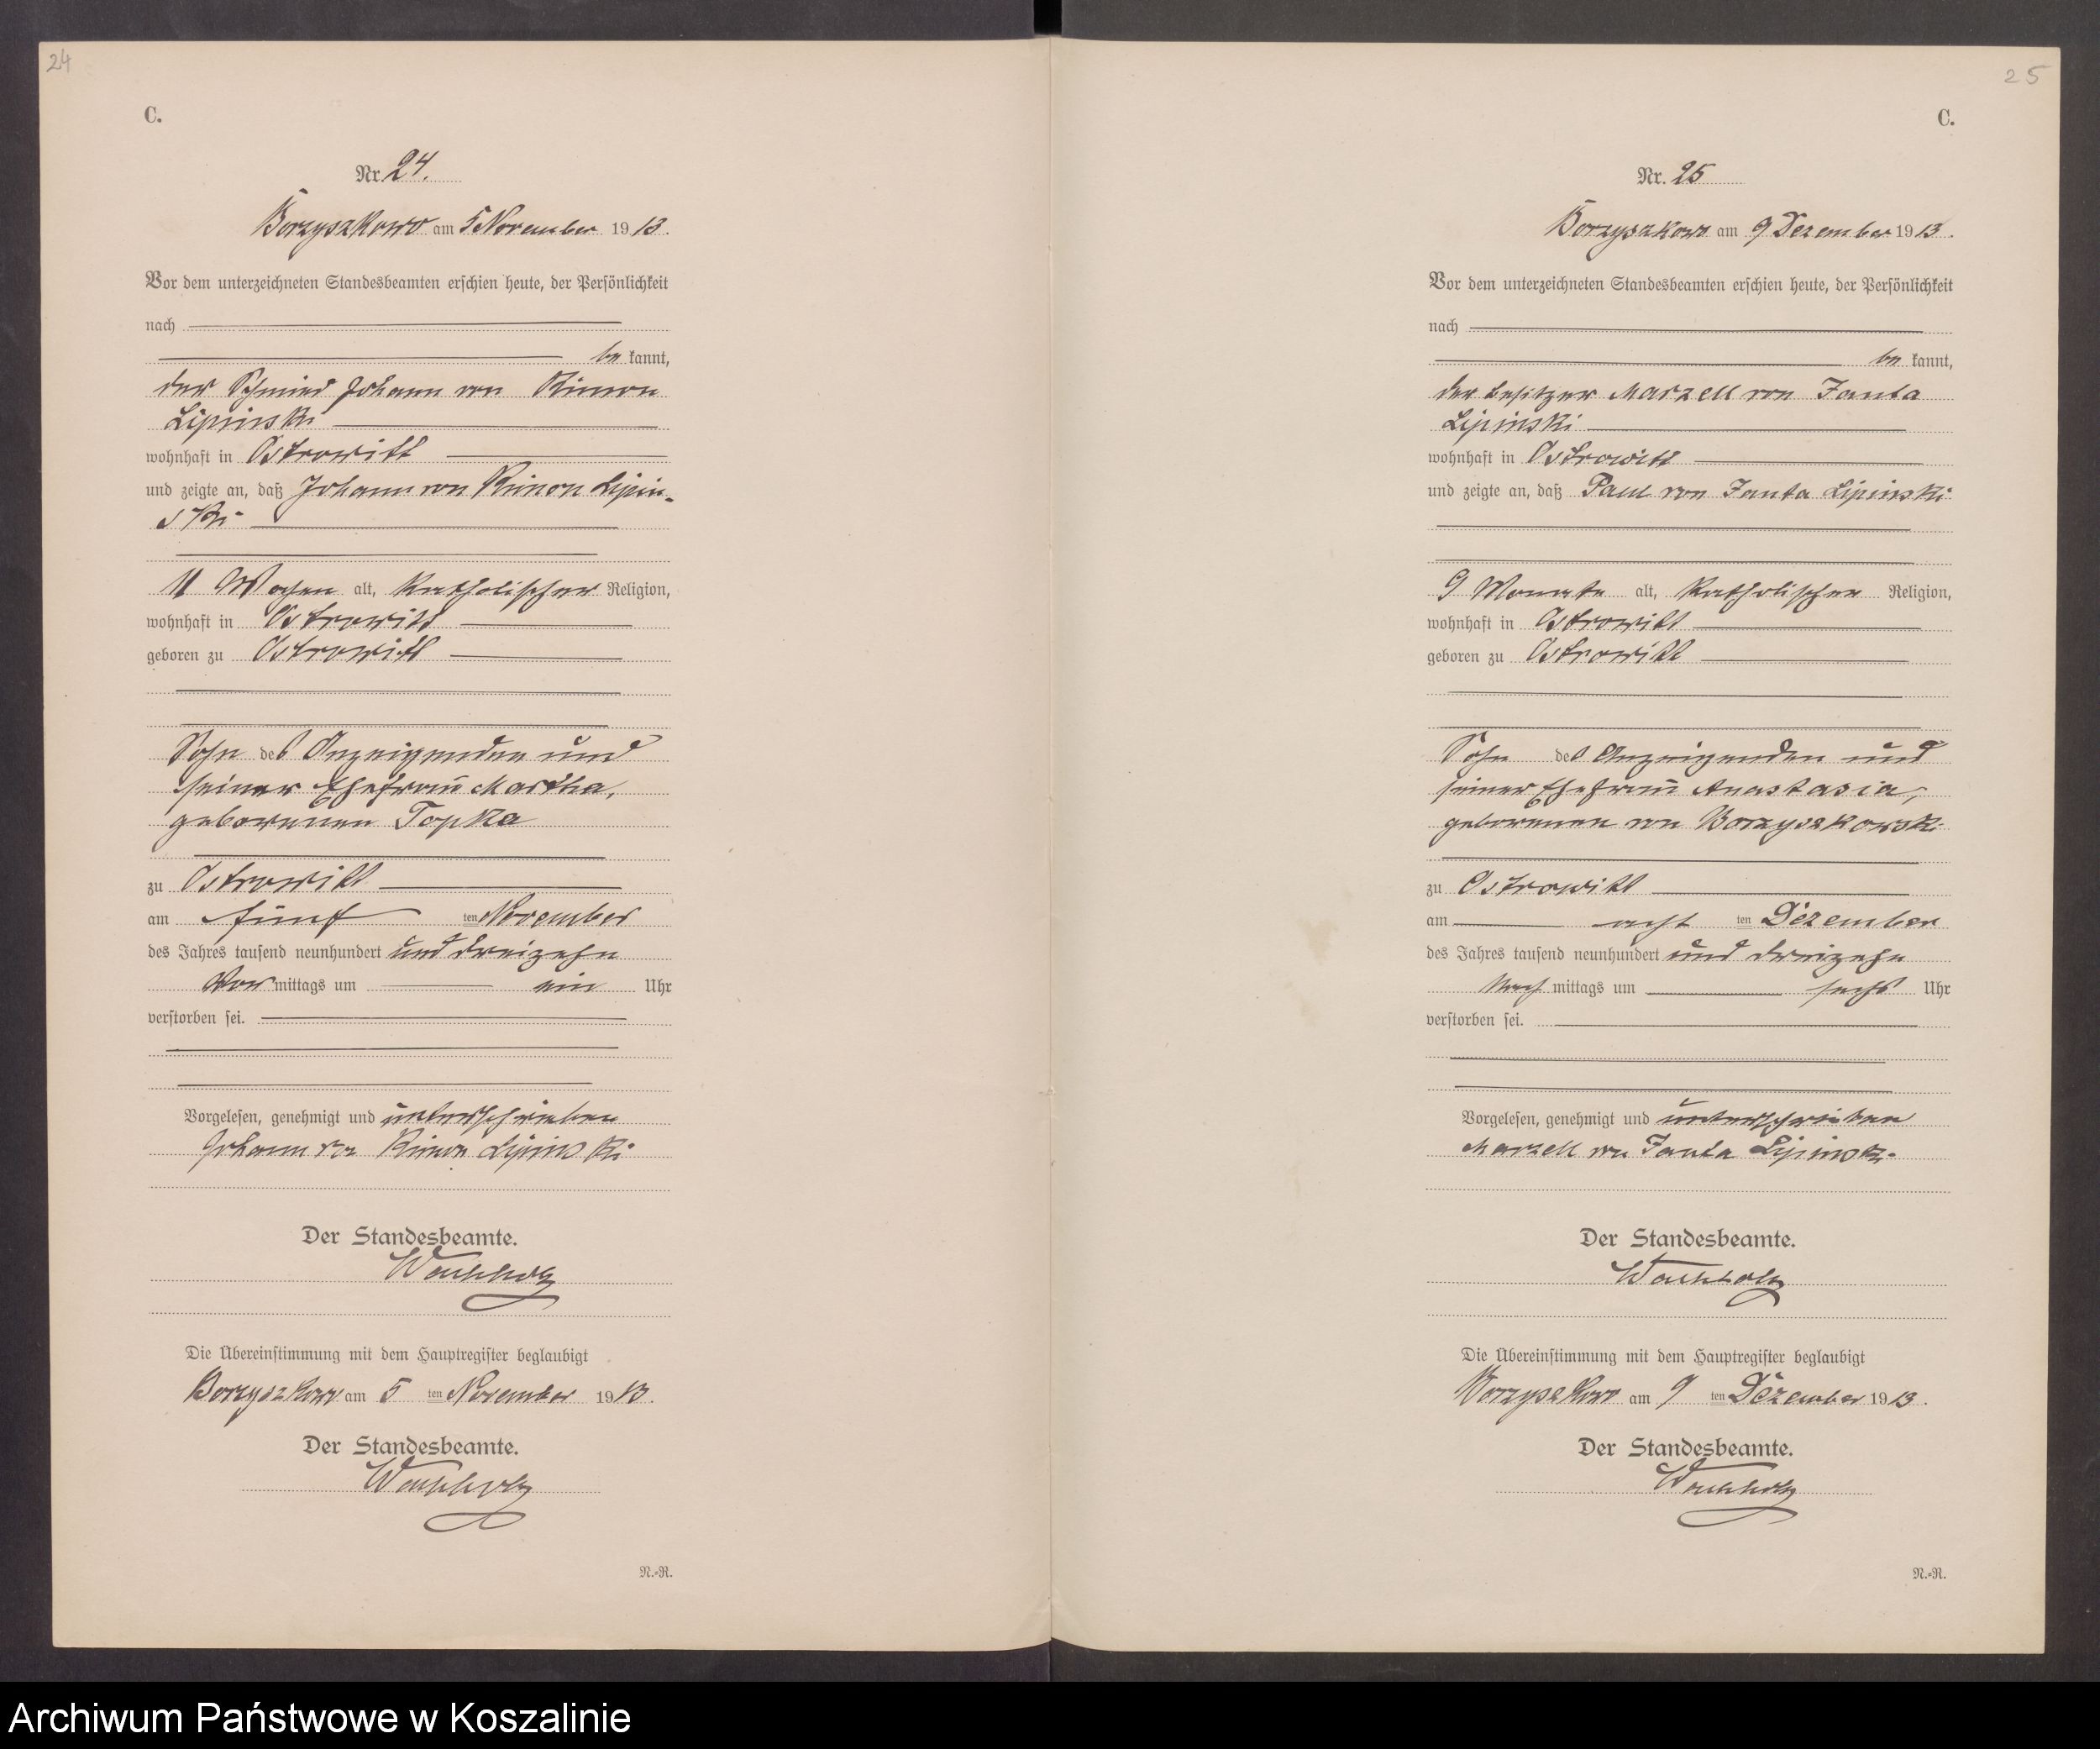 24
C.
Nr. 24.
Borzyszkowo am 5 November 1913.
Vor dem unterzeichneten Standesbeamten erschien heute, der Persönlichkeit
nach
be kannt,
der Schmied Johann von Rimon
Lipinski
wohnhaft in Ostrowitt
und zeigte an, daß Johann von Rimon Lipin-
ski
11 Wochen alt, katholischer Religion,
wohnhaft in Ostrowitt
geboren zu Ostrowitt
Sohn des Anzeigenden und
seiner Ehefrau Martha,
geborenen Topka
zu Ostrowitt
am fünf ten November
des Jahres tausend neunhundert und dreizehn
Vor mittags um ein Uhr
verstorben sei.
Vorgelesen, genehmigt und unterschrieben
Johann von Rimon Lipinski
Der Standesbeamte.
Wachholz
Die Übereinstimmung mit dem Hauptregister beglaubigt
Borzyszkowo am 5 ten November 1913.
Der Standesbeamte.
Wachholz
N.-R.
25
C.
Nr. 25
Borzyszkowo am 9 Dezember 1913.
Vor dem unterzeichneten Standesbeamten erschien heute, der Persönlichkeit
nach
be kannt,
der Besitzer Marzell von Janta
Lipinski
wohnhaft in Ostrowitt
und zeigte an, daß Paul von Janta Lipinski
9 Monate alt, katholischer Religion,
wohnhaft in Ostrowitt
geboren zu Ostrowitt
Sohn des Anzeigenden und
seiner Ehefrau Anastasia,
geborenen von Borzyszkowski
zu Ostrowitt
am acht ten Dezember
des Jahres tausend neunhundert und dreizehn
Nach mittags um sechs Uhr
verstorben sei.
Vorgelesen, genehmigt und unterschrieben
Marzell von Janta Lipinski
Der Standesbeamte.
Wachholz
Die Übereinstimmung mit dem Hauptregister beglaubigt
Borzyszkowo am 9 ten Dezember 1913.
Der Standesbeamte.
Wachholz
N.-R.
Archiwum Państwowe w Koszalinie